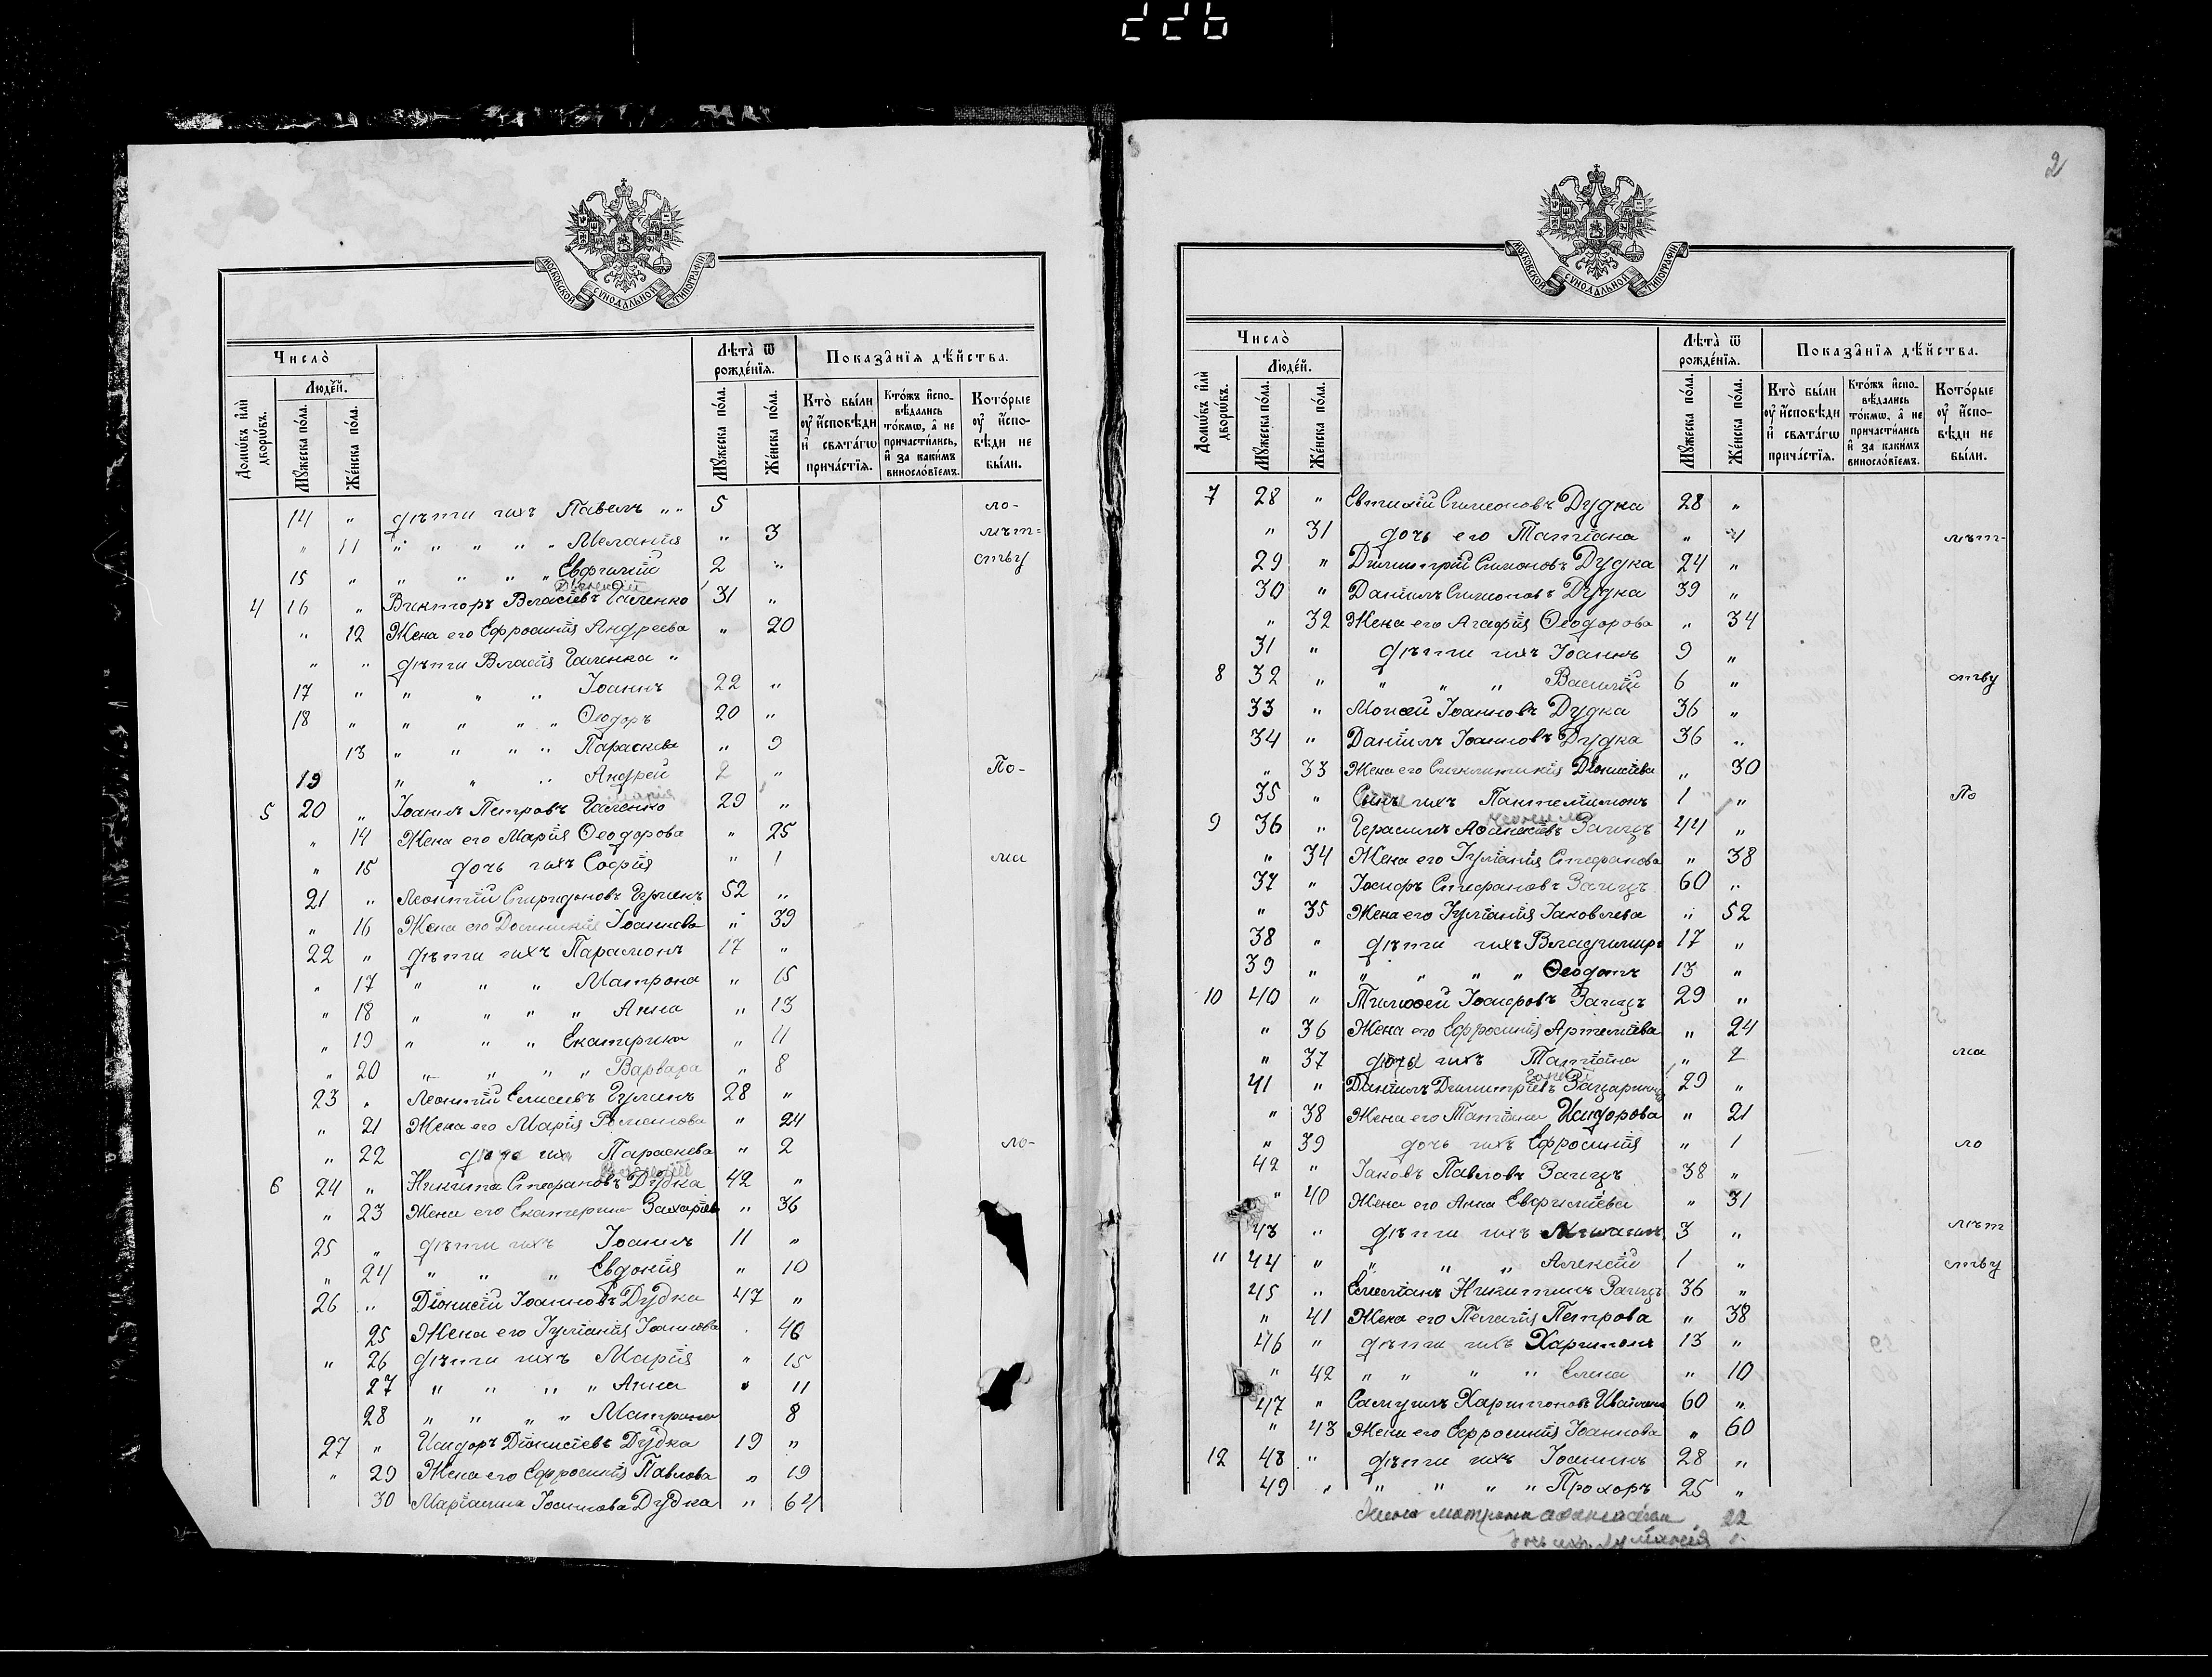 226
2
МОСКОВСКОЙ СѴНОДАЛЬНОЙ ТИПОГРАФІИ
Число̀
Людéй.
Домѡ́въ и҆лѝ дворѡ́въ.
Мꙋ́жеска по́ла.
Же́нска по́ла.
Лѣта̀ ѿ рожде́нїѧ.
Мꙋ́жеска по́ла.
Же́нска по́ла.
Показа̑нїѧ дѣ́йства.
Кто̀ бы́ли ᲂу҆ и҆́сповѣди и҆ свѧта́гѡ прича́стїѧ.
Кто́жъ и҆спо-вѣ́дались то́кмѡ, а҆ не причасти́лись, и҆ за каки́мъ винослові́емъ.
Кото́рые ᲂу҆ и҆́спо-вѣди не бы́ли.
14 „ дѣти ихъ Павелъ „ „ 5 ло-
„ 11 „ „ „ „ „ Меланія „ 3 лѣт=
15 „ „ „ „ „ Евфимій 2 „ ству
4 16 „ Викторъ Власіевъ Галенко 31 „
„ 12 Жена его Ефросинія Андреева „ 20
„ „ дѣти Власія Галенка „
17 „ „ „ „ Іоаннъ 22 „
18 „ „ „ „ „ Ѳеодоръ 20 „
13 „ „ „ „ Параскева „ 9
19 „ „ „ Андрей 2 „ По-
5 20 „ Іоаннъ Петровъ Галенко 29 „
„ 14 Жена его Марія Ѳеодорова „ 25
„ 15 дочь ихъ Софія „ 1 ма
21 „ Леонтій Спиридоновъ 52 „
„ 16 Жена его Домникія Іоаннова „ 39
22 „ дѣти ихъ Парамонъ 17 „
„ 17 „ „ „ Матрона „ 15
„ 18 „ „ „ „ Анна „ 13
„ 19 „ „ „ Екатерина „ 11
„ 20 „ „ „ „ Варвара „ 8
23 „ Леонтій Елисеевъ 28 „
„ 21 Жена его Марія „ 24
„ 22 дочь ихъ Параскева „ 2 ло-
6 24 „ Никита Стефановъ Дудка 42 „
„ 23 Жена его Екатерина Захаріева „ 36
25 „ дѣти ихъ Іоаннъ 11 „
„ 24 „ „ „ Евдокія „ 10
26 „ Діонисій Іоанновъ Дудка 47 „
25 Жена его Іуліанія Іоаннова „ 46
„ 26 дѣти ихъ Марія „ 15
27 „ „ „ „ Анна „ 11
28 „ „ „ „ Матрона 8
27 „ Исидоръ Діонисіевъ Дудка 19 „
„ 29 Жена его Ефросинія Павлова „ 19
30 Маріанна Іоаннова Дудка „ 64
МОСКОВСКОЙ СѴНОДАЛЬНОЙ ТИПОГРАФІИ
Число̀
Людéй.
Домѡ́въ и҆лѝ дворѡ́въ.
Мꙋ́жеска по́ла.
Же́нска по́ла.
Лѣта̀ ѿ рожде́нїѧ.
Мꙋ́жеска по́ла.
Же́нска по́ла.
Показа̑нїѧ дѣ́йства.
Кто̀ бы́ли ᲂу҆ и҆́сповѣди и҆ свѧта́гѡ прича́стїѧ.
Кто́жъ и҆спо-вѣ́дались то́кмѡ, а҆ не причасти́лись, и҆ за каки́мъ винослові́емъ.
Кото́рые ᲂу҆ и҆́спо-вѣди не бы́ли.
7 28 „ Евтихій Симеоновъ Дудка 28 „
„ 31 дочь его Татіана „ 4 лѣт-
29 „ Димитрій Симоновъ Дудка 24 „
30 „ Даніилъ Симоновъ Дудка 39 „
„ 32 Жена его Агафія Ѳеодорова „ 34
31 „ дѣти ихъ Іоаннъ 9 „
8 32 „ „ „ „ Василій 6 „ ству
33 „ Моисей Іоанновъ Дудка 36 „
34 „ Даніилъ Іоанновъ Дудка 36 „
„ 33 Жена его Синклитикія Діонисіева „ 30
35 „ Сынъ ихъ Пантелиимонъ 1 „ По
9 36 „ Герасимъ Заицъ 44 „
„ 34 Жена его Іуліанія Стефанова „ 38
37 „ Іосифъ Стефановъ Заицъ 60 „
„ 35 Жена его Іуліанія Іаковлева „ 52
38 „ дѣти ихъ Владимиръ 17 „
39 „ „ „ „ „ Ѳеодотъ 13 „
10 40 „ Тимоѳей Іосифовъ Заицъ 29 „
„ 36 Жена его Ефросинія Артеміева „ 24
„ 37 дочь ихъ Татіана „ 2 ма
41 „ Даніилъ Димитріевъ 29 „
„ 38 Жена его Татіана Исидорова „ 21
„ 39 дочь ихъ Ефросинія „ 1 ло
42 „ Іаковъ Павловъ Заицъ 38 „
„ 40 Жена его Анна Евфиміева „ 31
43 „ дѣти ихъ Михаилъ 3 „ лѣт
11 44 „ „ „ „ Алексій 1 „ ству
45 „ Емеліанъ Никитинъ Заицъ 36 „
„ 41 Жена его Пелагія Петрова „ 38
46 „ дѣти ихъ Харитонъ 13 „
„ 42 „ „ „ „ Елена „ 10
47 „ Самуилъ Харитоновъ 60 „
„ 43 Жена его Ефросинія Іоаннова „ 60
12 48 „ дѣти ихъ Іоаннъ 28 „
49 „ „ „ „ „ Прохоръ 25 „
Жена Матрона 22